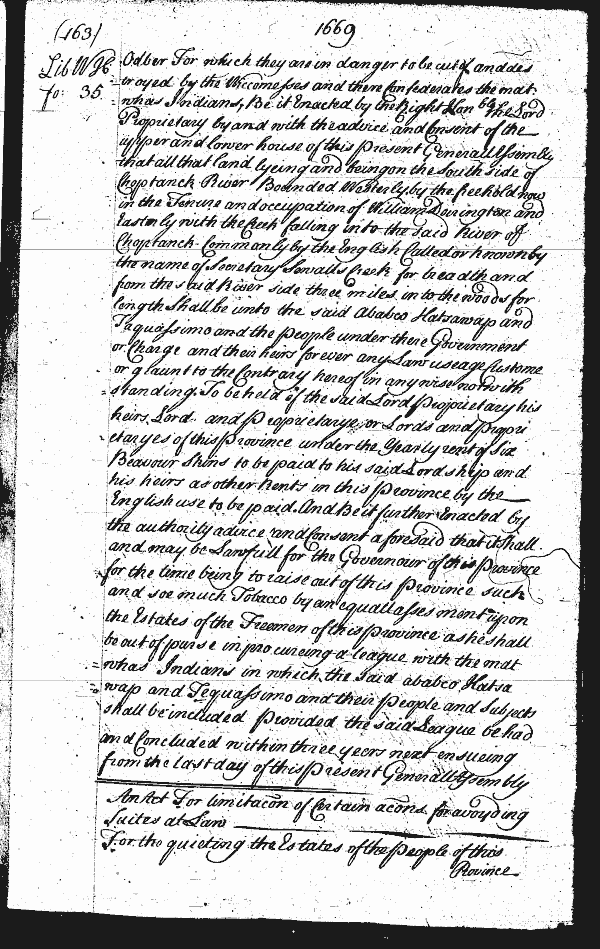 (163)
1669
Lib WH
fo: 35
Odber For which they are in danger to be cut of and des
troyed by the Wiccomesses and there Confederates the mat
whas Indians, Be it Enacted by the Right Hon ble the Lord
Proprietary by and with the advice and Consent of the
upper and lower house of this present Generall Assembly
that all that land lyeing and being on the South side of
Choptanck River Bounded Westerly by the freehold now
in the Tenure and occupation of William Dorington and
Easterly with the Creek falling into the said River of
Choptanck Commonly by the English Called or known by
the name of Secretary Sewalls Creek for breadth and
from the said River side three miles into the woods for
length Shall be unto the said Ababco Hatsawap and
Tequassimo and the People under there Government
or Charge and their heirs for ever any Law useage Custome
or graunt to the Contrary hereof in any wise notwith
standing. To be held of the said Lord Proprietary his
heirs Lord and Proprietarye or Lords and Propri
etaryes of this Province under the Yearly rent of Six
Beavour Skins to be paid to his said Lordship and
his heirs as other Rents in this Province by the
English use to be paid. And Be it further Enacted by
the authority advice and Consent aforesaid that it Shall
and may be Lawfull for the Governour of this Province
for the time being to raise out of this Province such
and soe much Tobacco by an equall assessment upon
the Estates of the Freemen of this Province as he shall
be out of purse in procureing a league with the mat
whas Indians in which the said ababco Hatsa
wap and Tequassimo and their People and Subjects
shall be included Provided the said League be had
and Concluded within three yeers next ensueing
from the last day of this Present Generall Assembly
An Act For limitacon of Certain acons for avoyding
Suites at Law
For the quieting the Estates of the People of this
Province